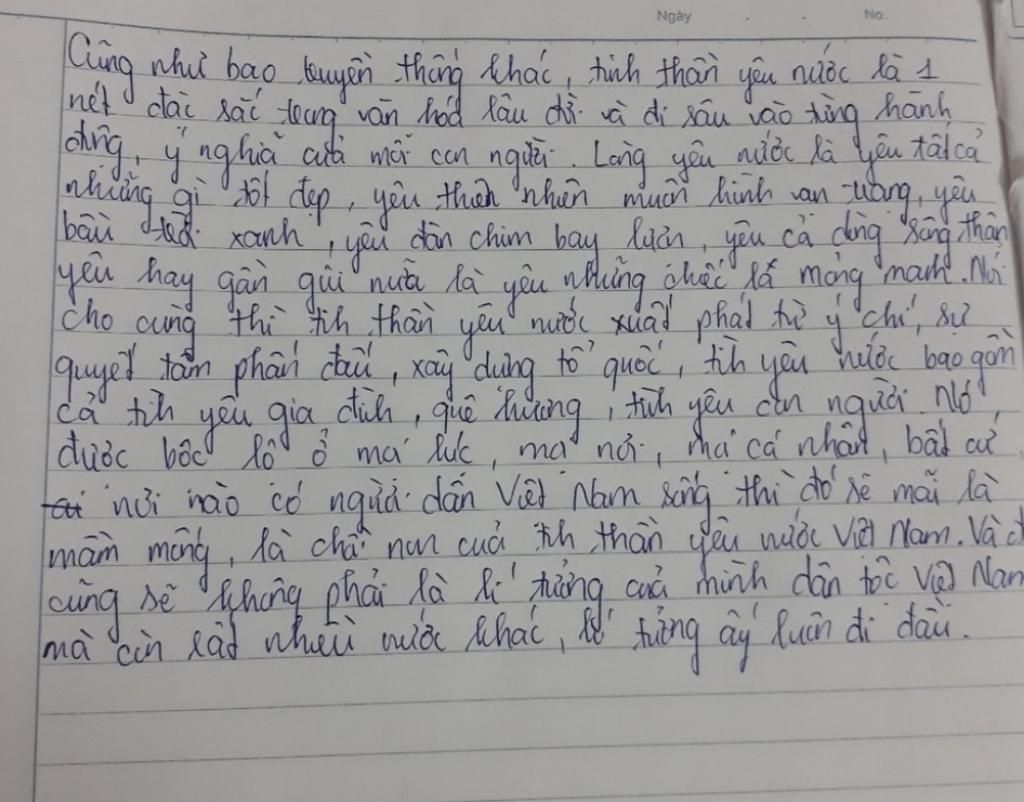 Ngày . . No.
Cũng như bao truyền thống khác, tinh thần yêu nước là 1
nét đặc sắc trong văn hoá lâu đời và đi sâu vào từng hành
động, ý nghĩa của mỗi con người. Lòng yêu nước là yêu tất cả
những gì tốt đẹp, yêu thiên nhiên muôn hình vạn trạng, yêu
bầu trời xanh, yêu đàn chim bay lượn, yêu cả dòng sông thân
yêu hay gần gũi nữa là yêu những chiếc lá mỏng manh. Nói
cho cùng thì tinh thần yêu nước xuất phát từ ý chí, sự
quyết tâm phấn đấu, xây dựng tổ quốc, tình yêu nước bao gồm
cả tình yêu gia đình, quê hương, tình yêu con người. Nó
được bộc lộ ở mọi lúc, mọi nơi, mọi cá nhân, bất cứ
nơi nào có người dân Việt Nam sống thì đó sẽ mãi là
mầm mống, là chồi non của tinh thần yêu nước Việt Nam. Và
cũng sẽ không phải là lí tưởng của mình dân tộc Việt Nam
mà còn rất nhiều nước khác, lí tưởng ấy luôn đi đầu.